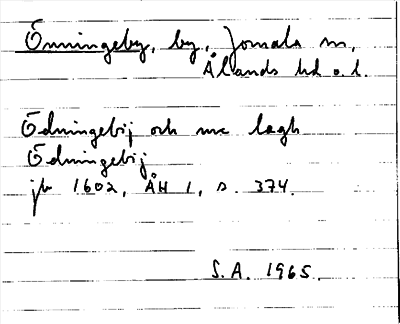 Önningeby, by, Jomala sn,
Ålands hd o. l.
Ödningebÿ och me lagh
Ödningebÿ
jb 1602, ÅH 1, s. 374.
S.A. 1965.